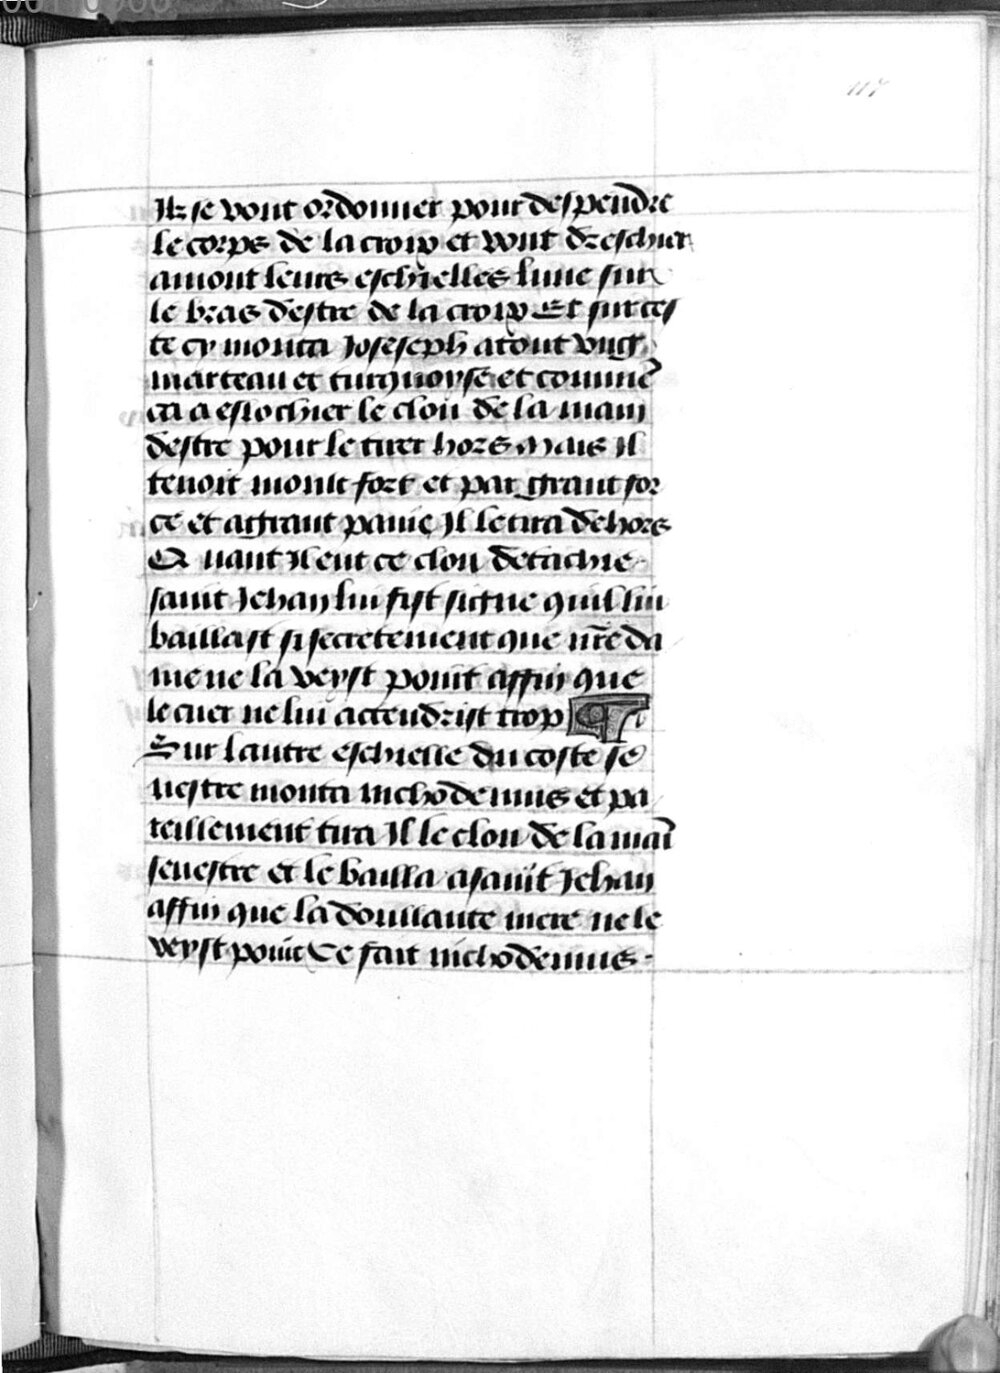 117
Ilz se vont ordonner pour despendre
le corps de la croix et vont dreschier
amont leurs eschielles lune sur
le bras destre de la croix Et sur ces
te cy monta Joseseph atout vng
marteau et turquoyse et commē
ca a eslochier le clou de la main
destre pour le tirer hors Mais il
tenoit moult fort et par grant for
ce et agrant paine Il le tira dehors
Quant il eut ce clou detachie
saint Jehan lui fist signe quil lui
baillast si secretement que nr̄e da
me ne la veyst point affin que
le cuer ne lui attendrist trop
Sur lautre eschielle du coste se
nestre monta nichodemus et pa
reillement tira Il le clou de la maī
senestre et le bailla a saint Jehan
affin que la doullante mere ne le
veyst point Ce fait nichodemus